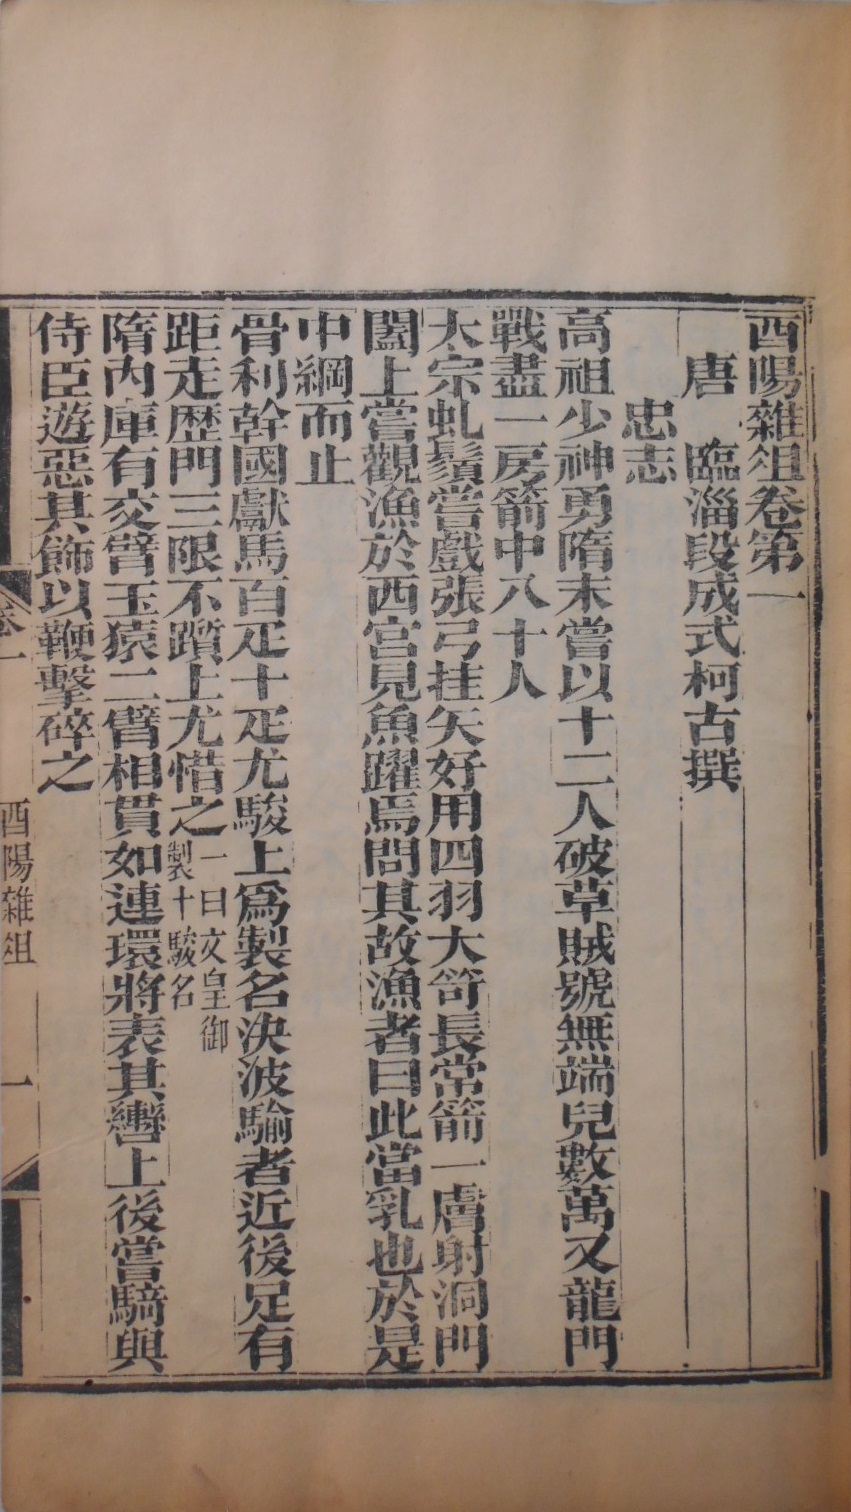 酉陽雜俎卷第一
唐　臨淄段成式柯古撰
忠志
高祖少神勇隋末嘗以十二人破草賊號無端兒數萬又龍門
戰盡一房箭中八十人
太宗虬鬚嘗戲張弓挂矢好用四羽大笴長常箭一膚射洞門
闔上嘗觀漁於西宫見魚躍焉問其故漁者曰此當乳也於是
中綱而止
骨利幹國獻馬百疋十疋尤駿上爲製名決波騟者近後足有
距走歴門三限不躓上尤惜之一曰文皇御製十駿名
隋内庫有交臂玉猿二臂相貫如連環將表其轡上後嘗騎與
侍臣遊惡其飾以鞭擊碎之
卷一
酉陽雜俎
一